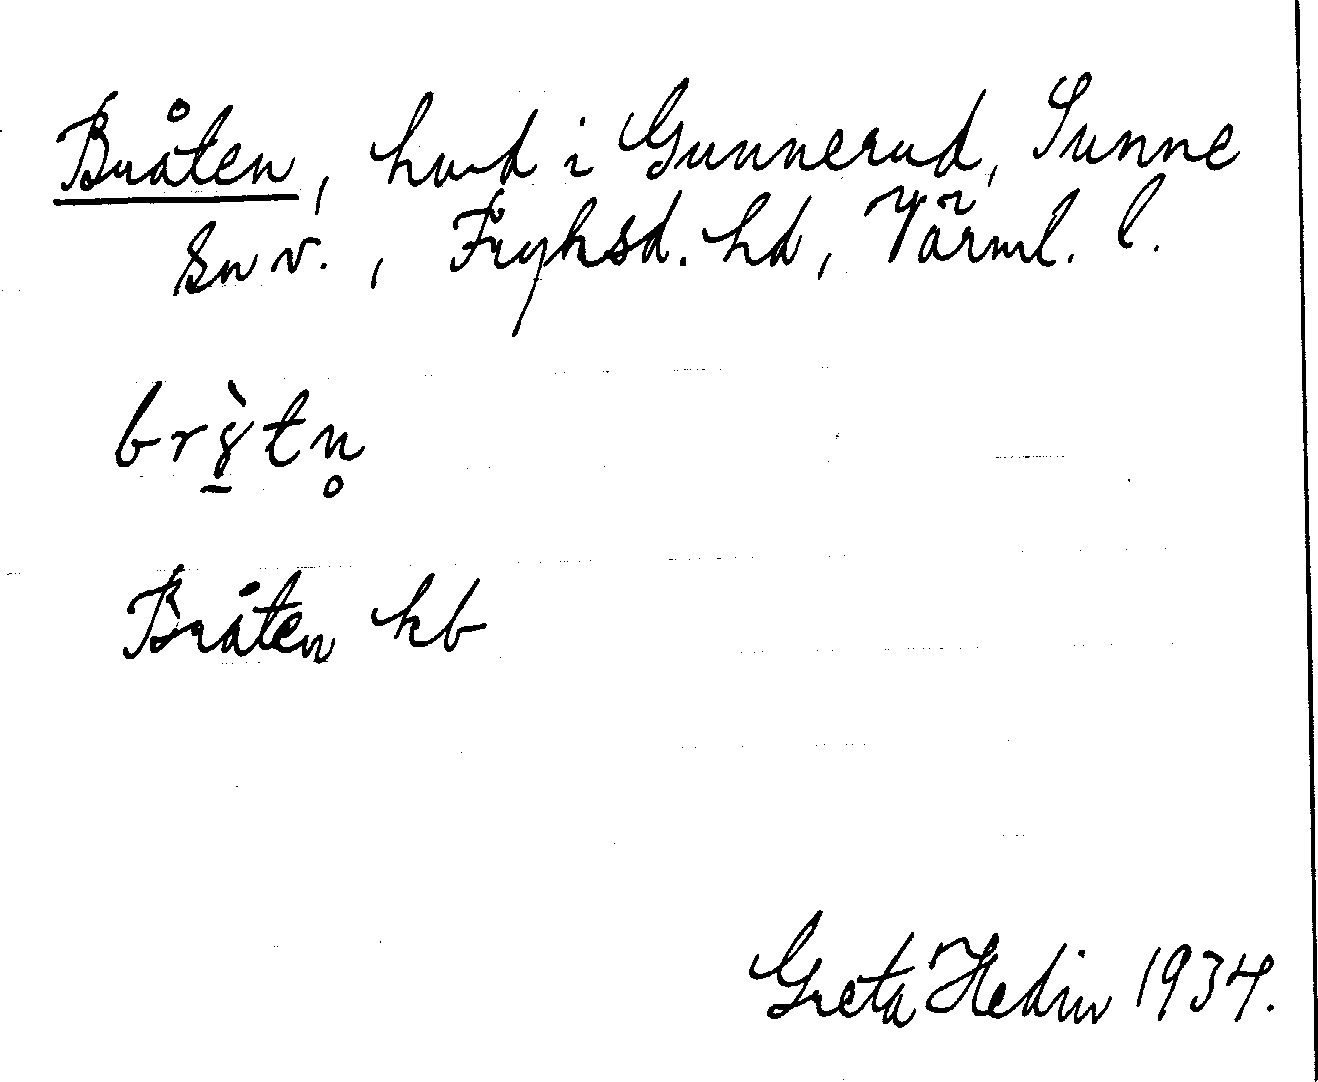 Bråten, hmd i Gunnerud, Sunne
sn v., Fryksd. hd, Värml. l.
Bråten kb
Greta Hedin 1934.